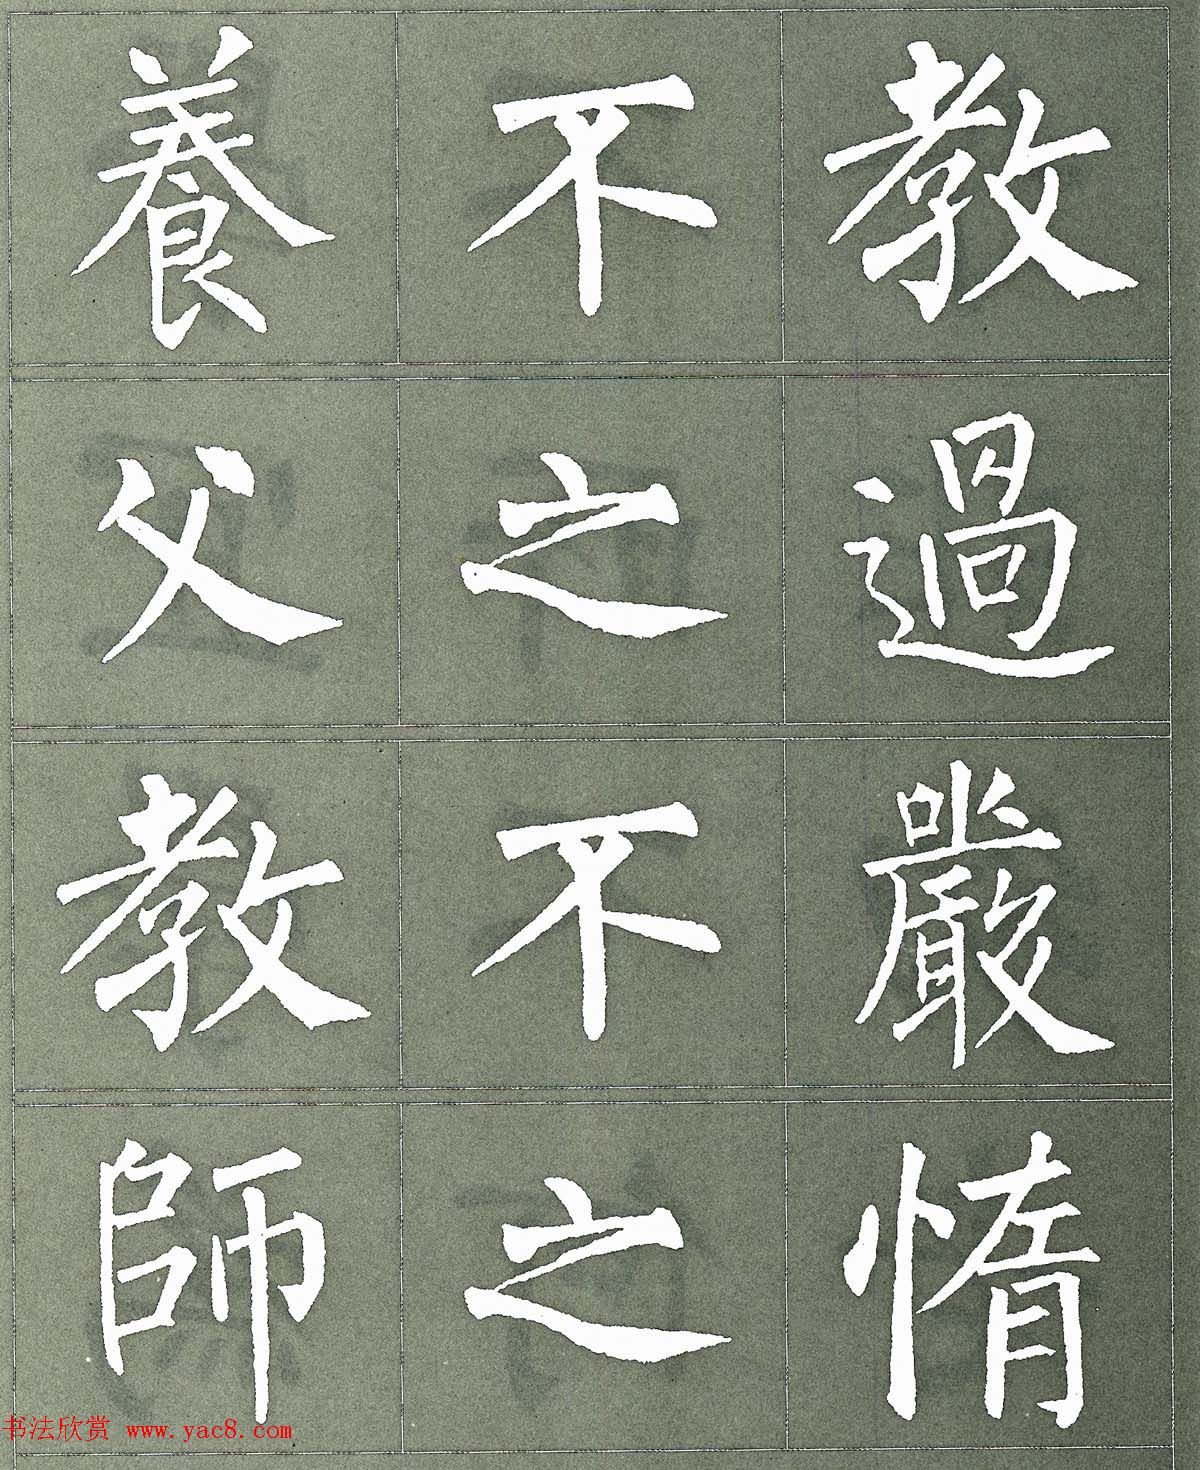 養不教
父之過
教不嚴
師之惰
书法欣赏 www.yac8.com